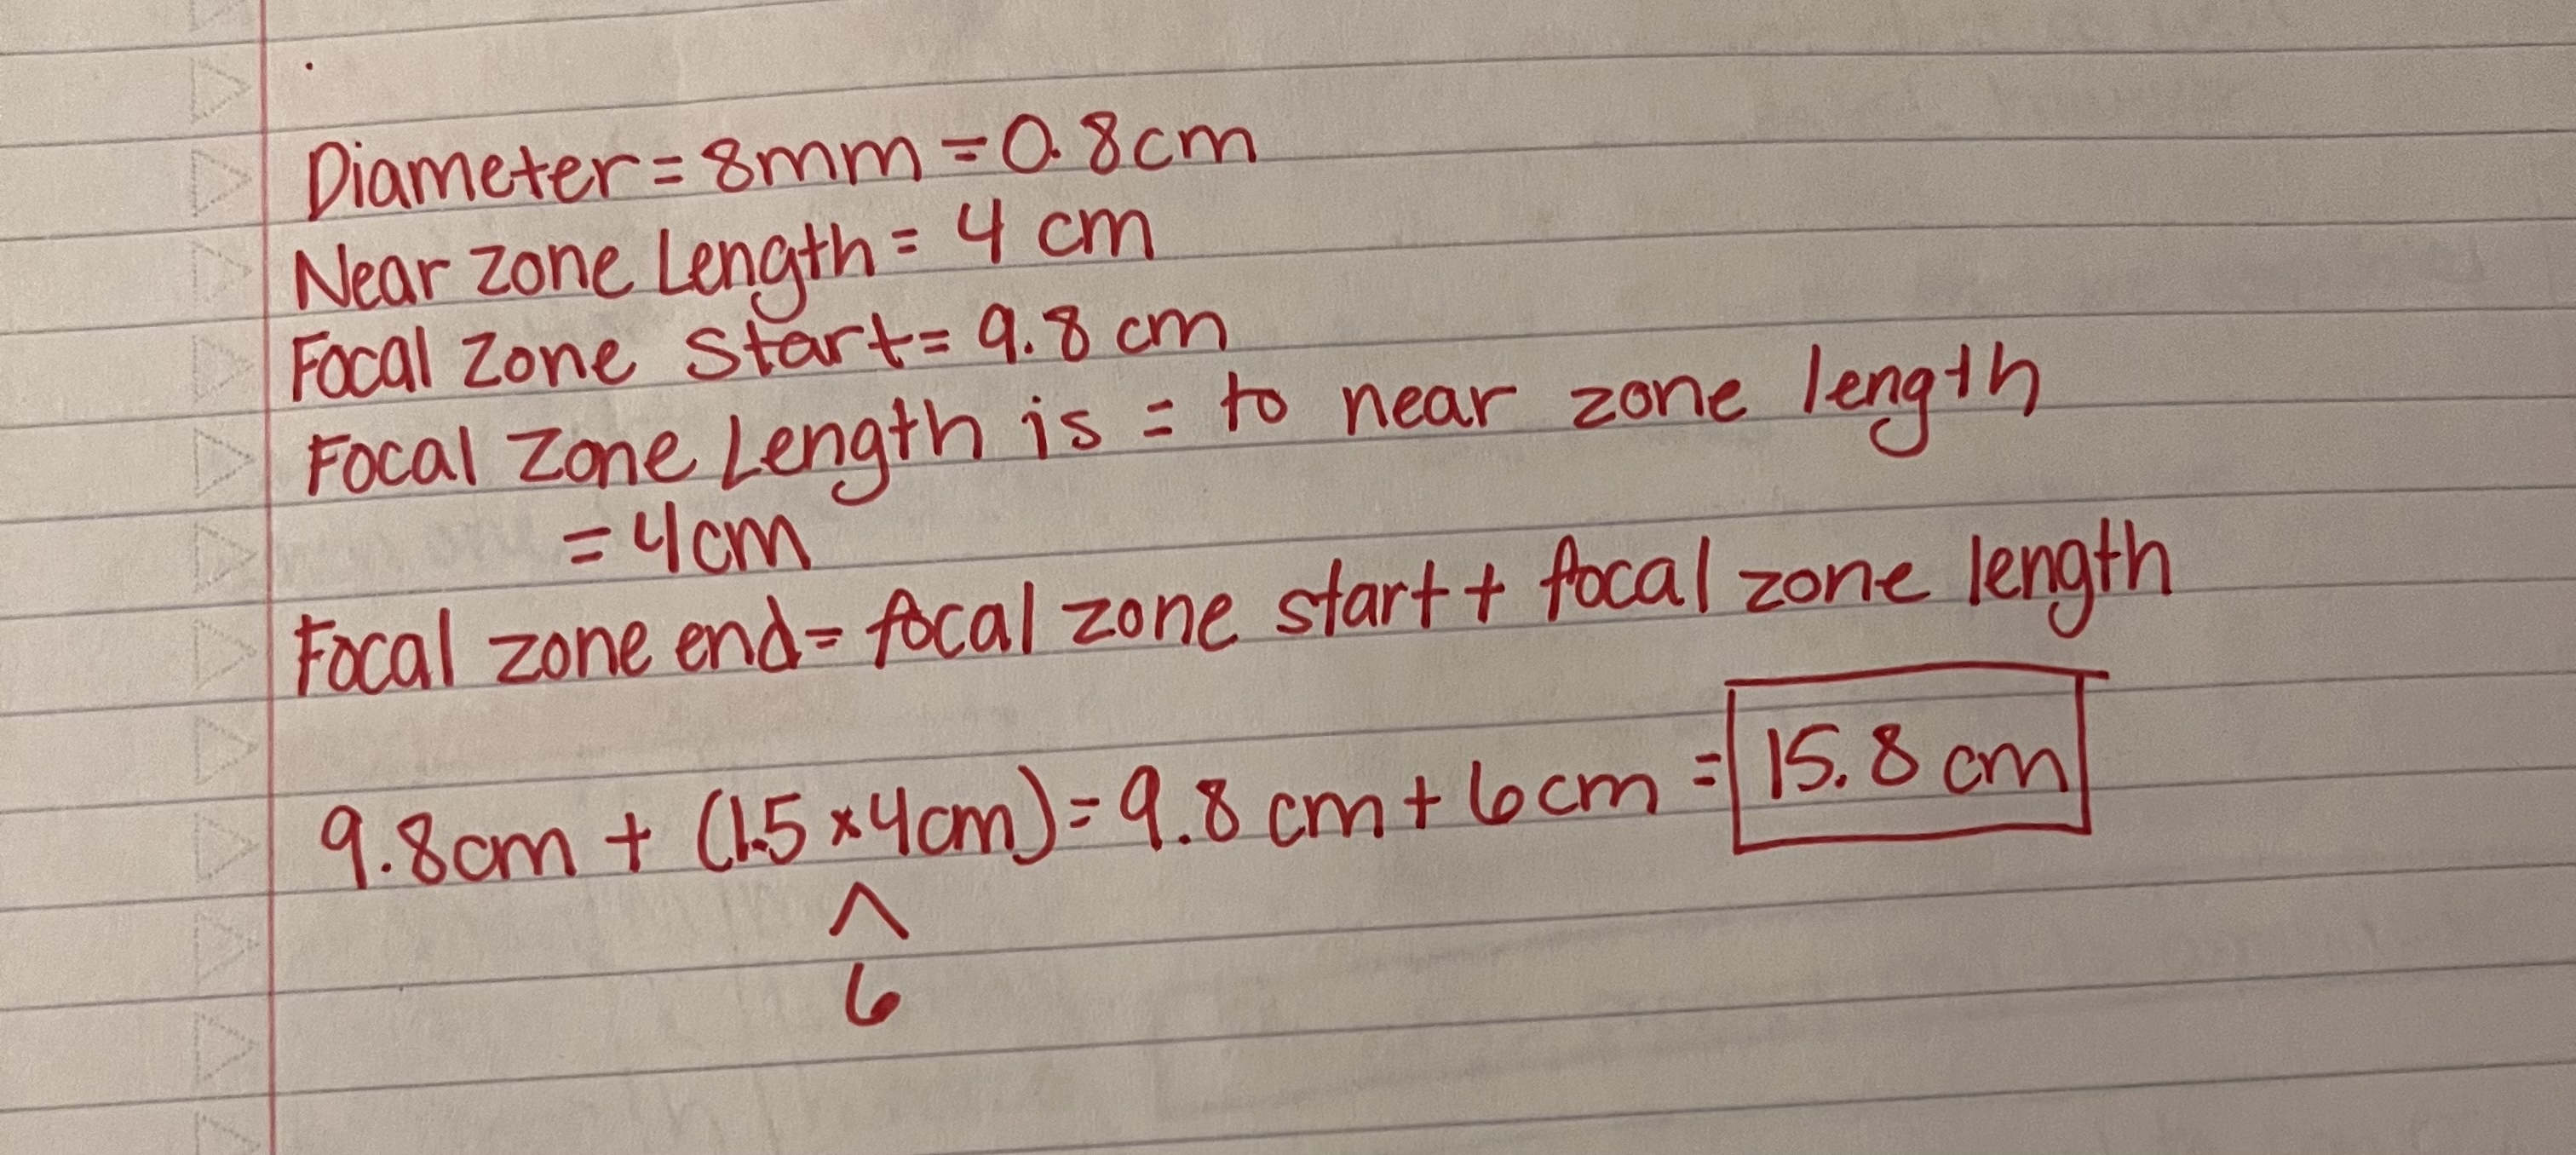 Diameter = 8mm = 0.8cm
Near zone Length = 4 cm
Focal zone start = 9.8 cm
Focal zone Length is = to near zone length
= 4cm
Focal zone end = focal zone start + focal zone length
9.8cm + (1.5 × 4cm) = 9.8 cm + 6cm = 15.8 cm
^
6